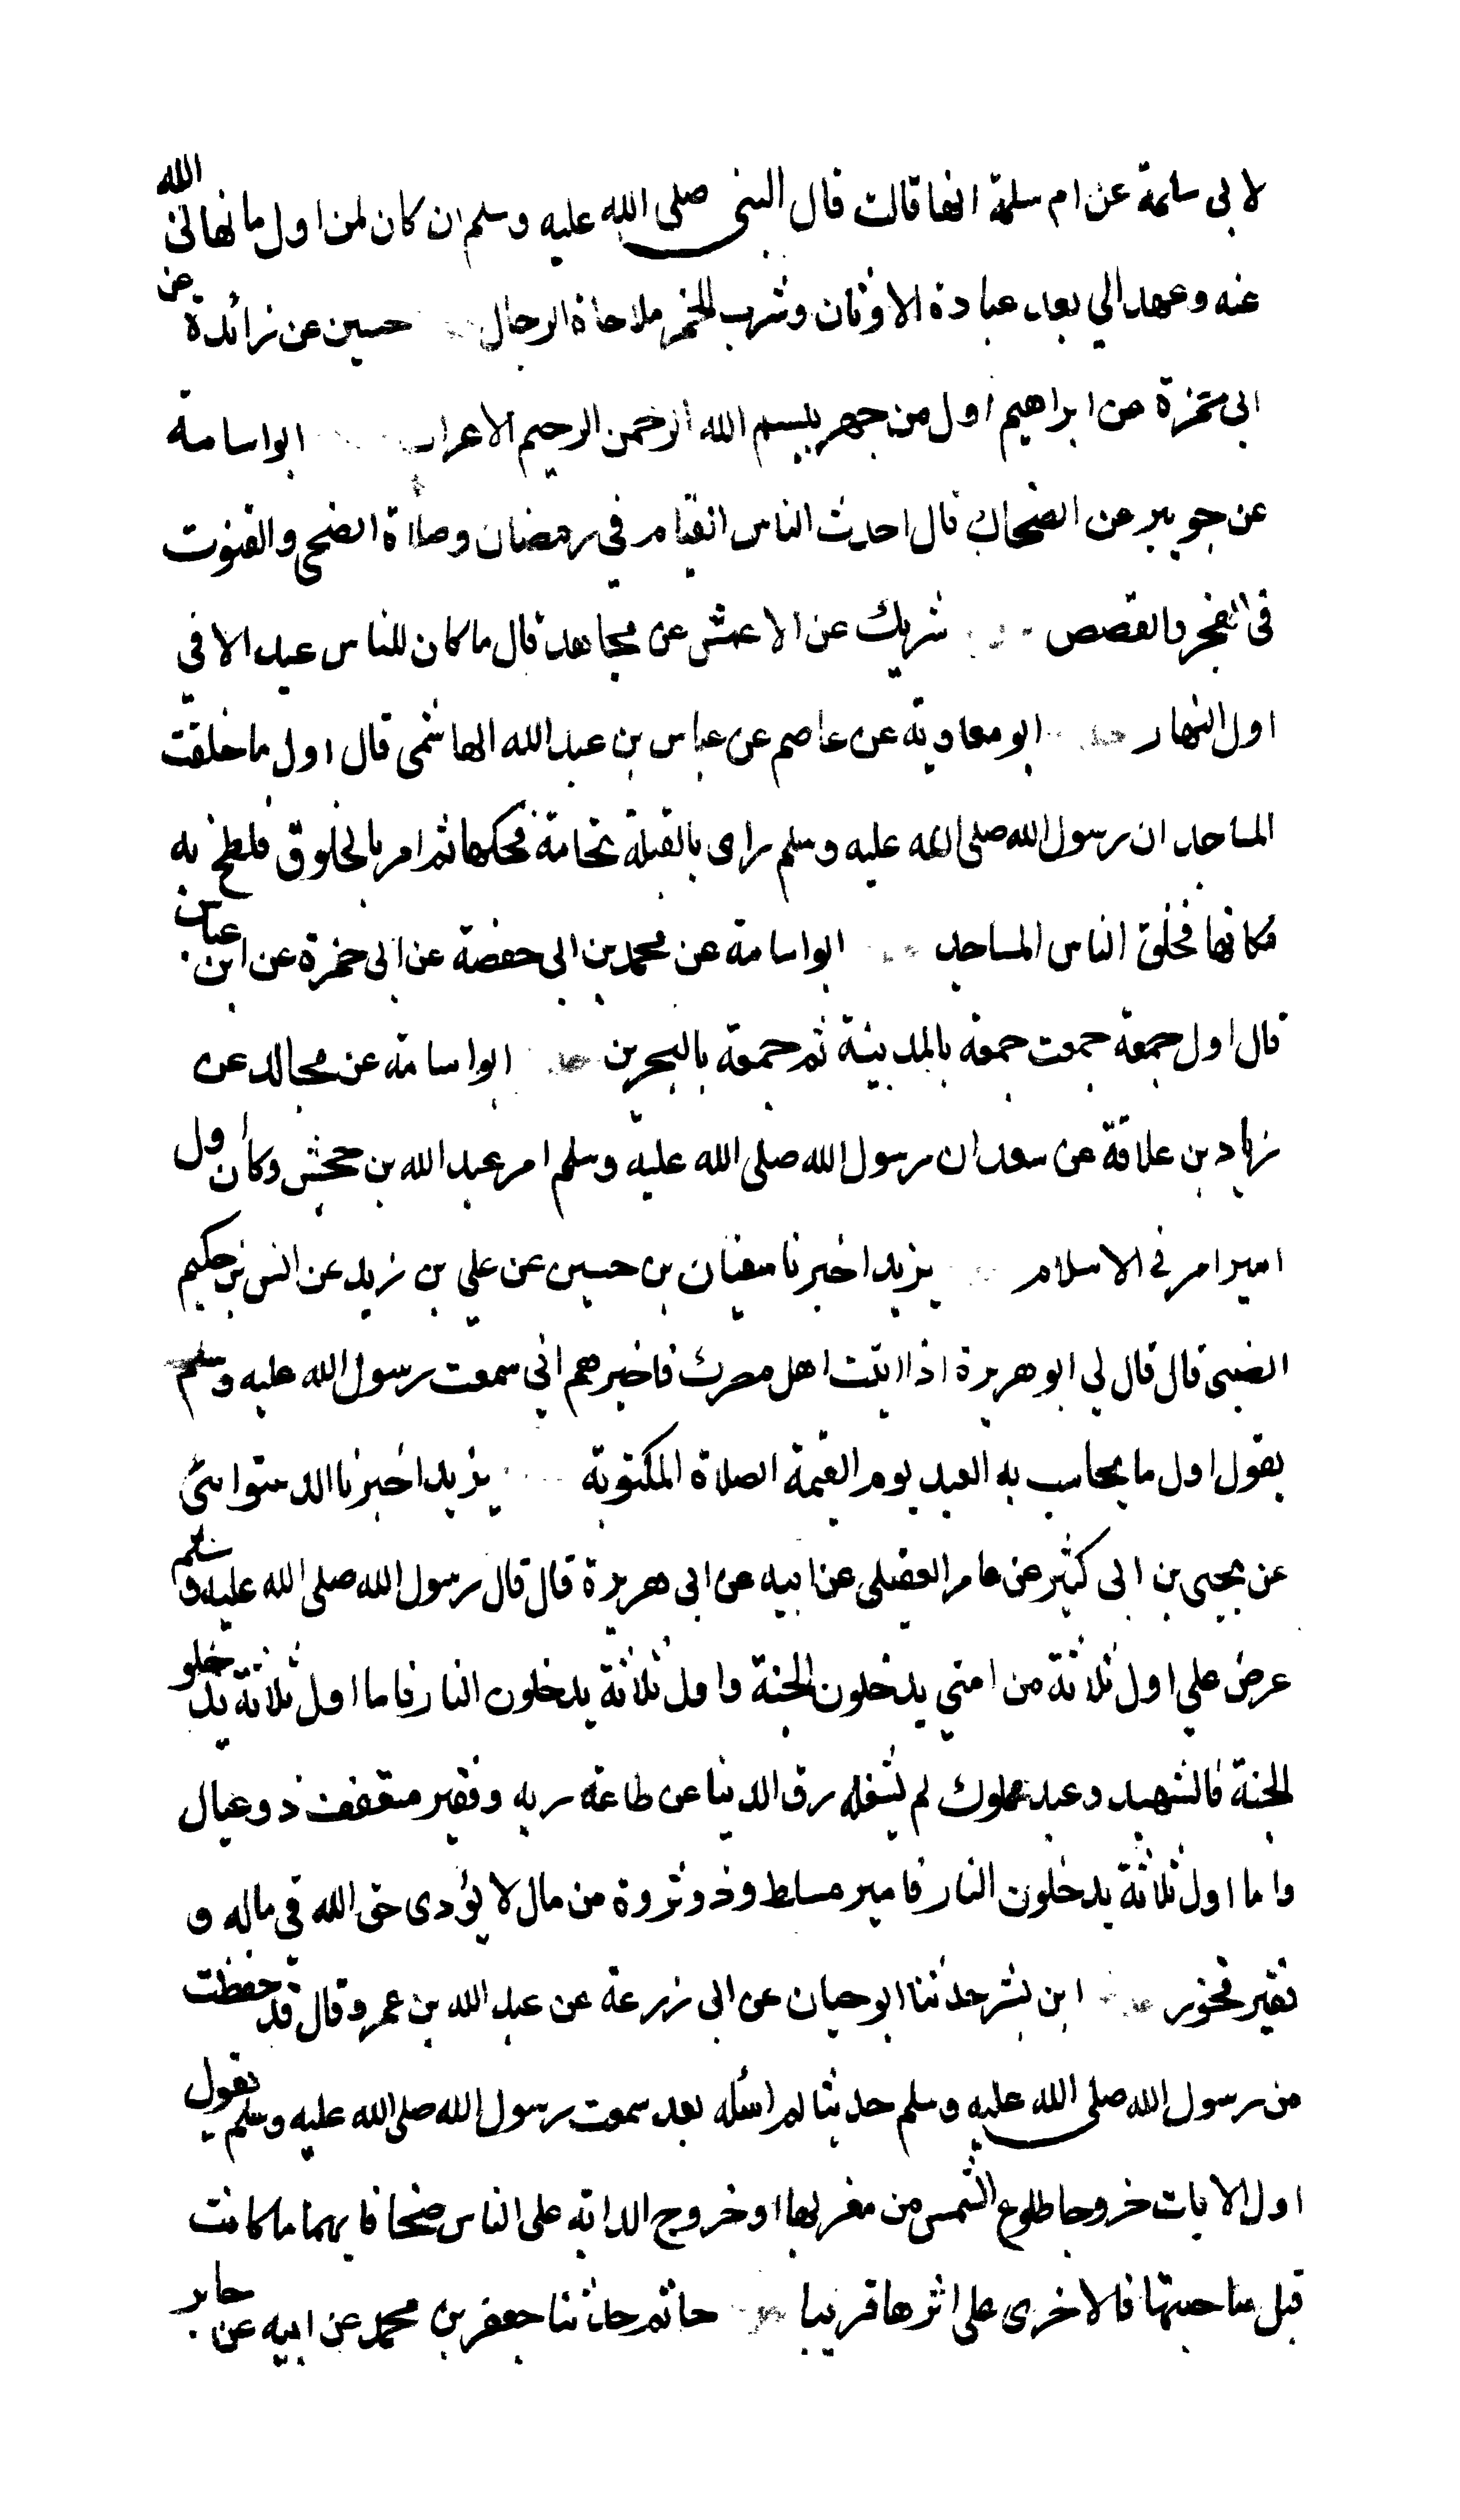 لابى سلمة عن ام سلمة انها قالت قال النبى صلى الله عليه وسلم ان كان لمن اول ما نهانى الله
عنه وعهد الي بعد عبادة الاوثان وشرب الخمر ملاحاة الرجال حسين عن زائدة عن
ابى حمزة عن ابراهيم اول من جهر ببسم الله الرحمن الرحيم الاعراب ابو اسامة
عن جويبر عن الضحاك قال احدث الناس القيام في رمضان وصلاة الضحى والقنوت
فى الفجر والقصص شريك عن الاعمش عن مجاهد قال ما كان للناس عيد الا في
اول النهار ابو معاوية عن عاصم عن عباس بن عبد الله الهاشمى قال اول ما خلقت
المساجد ان رسول الله صلى الله عليه وسلم راى بالقبلة نخامة فحكها ثم امر بالخلوق فلطخ به
مكانها فخلق الناس المساجد ابو اسامة عن محمد بن ابى حفصة عن ابى حمزة عن ابن عباس
قال اول جمعة جمعت جمعة بالمدينة ثم جمعة بالبحرين ابو اسامة عن مجالد عن
زياد بن علاقة عن سعد ان رسول الله صلى الله عليه وسلم امر عبد الله بن جحش وكان اول
امير امر فى الاسلام يزيد اخبرنا سفيان بن حسين عن علي بن زيد عن انس بن حكيم
الضبى قال قال لي ابو هريرة اذا اتيت اهل مصرك فاخبرهم انى سمعت رسول الله عليه وسلم
يقول اول ما يحاسب به العبد يوم القيمة الصلاة المكتوبة يزيد اخبرنا الدستوائى
عن يحيى بن ابى كثير عن عامر العقيلى عن ابيه عن ابى هريرة قال قال رسول الله صلى الله عليه وسلم
عرض علي اول ثلاثة من امتي يدخلون الجنة واول ثلاثة يدخلون النار فاما اول ثلاثة يدخلو
الجنة فالشهيد وعبد مملوك لم يشغله رق الدنيا عن طاعة ربه وفقير متعفف ذو عيال
واما اول ثلاثة يدخلون النار فامير مسلط وذو ثروة من مال لا يؤدى حق الله فى ماله و
فقير فخور ابن بشر حدثنا ابو حيان عن ابى زرعة عن عبد الله بن عمرو قال قد حفظت
من رسول الله صلى الله عليه وسلم حديثا لم انسه بعد سمعت رسول الله صلى الله عليه وسلم يقول
اول الايات خروجا طلوع الشمس من مغربها او خروج الدابة على الناس ضحا فايهما ما كانت
قبل صاحبتها فالاخرى على اثرها قريبا حاتم حدثنا جعفر بن محمد عن ابيه عن جابر